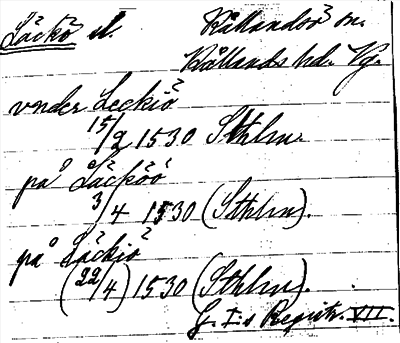 Läckö sl. Kållandsö sn.
Kållands hd. Vg.
vnder Leckiö
15/2 1530 Sthlm.
på Läcköö
3/4 1530 (Sthlm).
på Läckiö
(22/4) 1530 (Sthlm).
G. I:s Registr. VII.